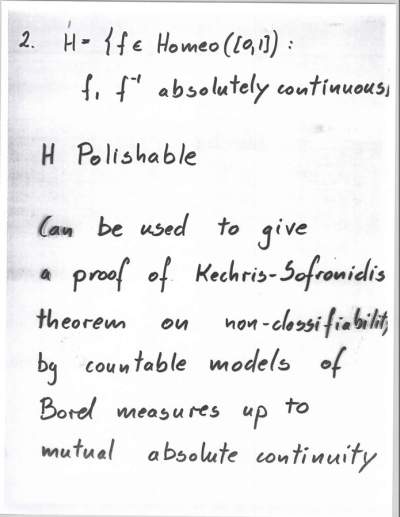 2. H = {f ∈ Homeo([0,1]) :
f, f⁻¹ absolutely continuous}
H Polishable
Can be used to give
a proof of Kechris-Sofronidis
theorem on non-classifiability
by countable models of
Borel measures up to
mutual absolute continuity